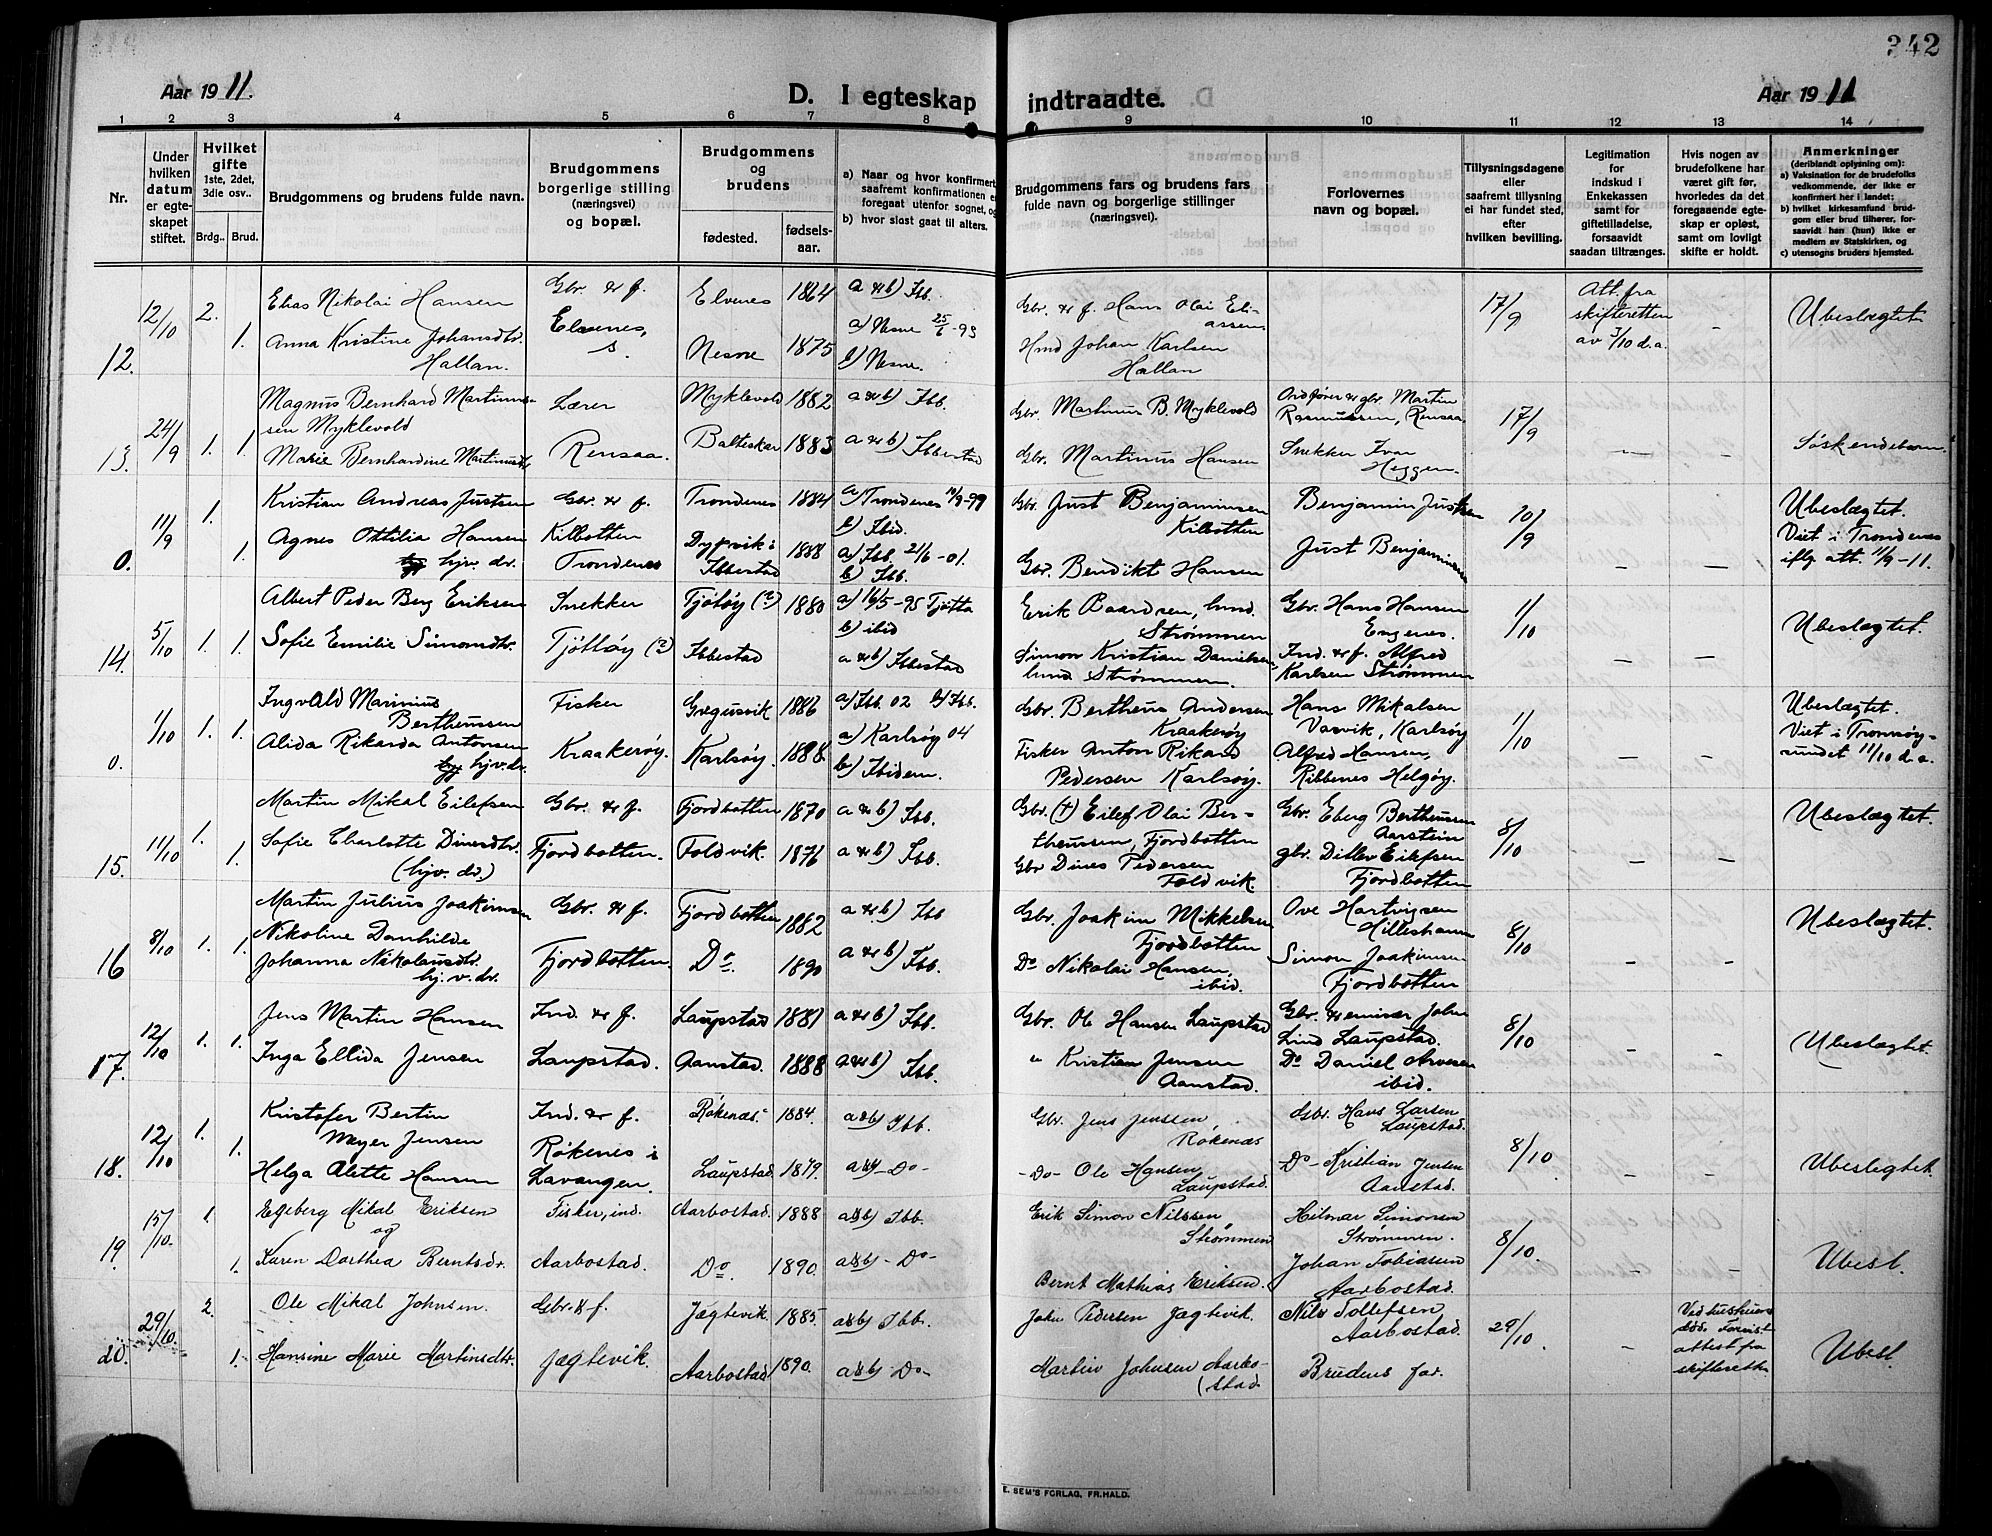 342
Aar 1911.
D. I egteskap indtraadte.
Aar 1911
1 2 3 4 5 6 7 8 9 10 11 12 13 14
Nr.
Under hvilken datum er egteskapet stiftet.
Hvilket gifte 1ste, 2det, 3die osv..
Brdg.. Brud.
Brudgommens og brudens fulde navn.
Brudgommens borgerlige stilling (næringsvei) og bopæl.
Brudgommens og brudens
fødested. fødselsaar.
a) Naar og hvor konfirmert, saafremt konfirmationen er foregaat utenfor sognet, og
b) hvor sidst gaat til alters.
Brudgommens fars og brudens fars fulde navn og borgerlige stillinger (næringsvei).
Forlovernes navn og bopæl.
Tillysningsdagene eller saafremt tillysning ei har fundet sted, efter hvilken bevilling.
Legitimation for indskud i Enkekassen samt for giftetilladelse, forsaavidt saadan tiltrænges.
Hvis nogen av brudefolkene har været gift før, hvorledes da det foregaaende egteskap er opløst, samt om lovligt skifte er holdt.
Anmerkninger (deriblandt oplysning om):
a) Vaksination for de brudefolks vedkommende, der ikke er konfirmert her i landet;
b) hvilket kirkesamfund brudgom eller brud tilhører, forsaavidt han (hun) ikke er medlem av Statskirken, og
c) utensogns bruders hjemsted.
12. 12/10 2. Elias Nikolai Hansen Gbr. & f. Elvenes 1864 a & b) Ibb. Gbr. & f. Hans Olai Eliassen 17/9 Att. fra skifteretten av 3/10 d.a. – Ubeslægtet.
1. Anna Kristine Johansdtr. Hallan. Elvenes, S. Nesne 1875 a) Nesne 25/6-93 b) Nesne. Hmd Johan Karlsen Hallan
13. 24/9 1. 1. Magnus Bernhard Martinussen Myklevold Lærer Myklevold 1882 a & b) Ibb. Gbr Martinus B. Myklevold Ordfører & gbr. Martin Rasmussen, Rensaa 17/9 – – Søskendebarn
Marie Bernhardine Martinusdtr. Rensaa. Balteskar 1883 a & b) Ibbestad Gbr. Martinus Hansen Snekker Ivar Heggen.
0. 11/9 1. Kristian Andreas Justsen Gbr. & f. Trondenes 1884 a) Trondenes 10/9-99 b) Ibid. Gbr. Just Benjaminsen Kilbotten Benjamin Justsen 10/9 – – Ubeslægtet.
1. Agnes Ottilia Hansen hjv. dr. Kilbotten Trondenes Dypvik i Ibbestad 1888 a) Ibb. 21/6-01. b) Ibb. Gbr. Bendikt Hansen Just Benjaminsen Viet i Trondenes iflg. att. 11/9-11.
14. 5/10 1. 1. Albert Peder Berg Eriksen Snekker Tjøtøy (?) 1880 a) 16/5-95 Tjøtta b) ibid Erik Baardsen, Ind. Strømmen Gbr. Hans Hansen Engenes. 1/10 – – Ubeslægtet.
Sofie Emilie Simonsdtr. Tjøttøy (?) Ibbestad a & b) Ibbestad Simon Kristian Danielsen, Ind Strømmen. Ind. & f. Alfred Karlsen Strømmen
0. 1/10 1. 1. Ingvald Marinius Bertheussen Fisker Gregusvik 1886 a) Ibb. 02 b) Ibb. Gbr. Bertheus Andersen Kraakerøy Hans Mikalsen Vasvik, Karlsøy 1/10 – – Ubeslægtet.
Alida Rikarda Antonsen hjv. dr. Kraakerøy. Karlsøy. 1888. a) Karlsøy 04 b) Ibidem. Fisker Anton Rikard Pedersen Karlsøy. Alfred Hansen, Ribbenes Helgøy. Viet i Tromsøysundet 11/10 d.a.
15. 11/10 1. Martin Mikal Eilefsen Gbr. & f. Fjordbotten 1870 a & b) Ibb. Gbr. (†) Eilef Olai Bertheussen, Fjordbotten Gbr. Eberg Bertheussen Aarstein 8/10 – – Ubeslægtet.
1. Sofie Charlotte Dinesdtr. (hjv. dr.) Fjordbotten. Foldvik. 1876 a & b) Ibb. Gbr Dines Pedersen Foldvik. gbr. Ditlev Eilefsen Fjordbotten
16 8/10 1. 1. Martin Julius Joakimsen Gbr. & f. Fjordbotten 1862 a & b) Ibb Gbr. Joakim Mikkelsen Fjordbotten Ove Hartvigsen Hilleshamn 8/10 – – Ubeslægtet.
Nikoline Danhilde Johanna Nikolausdtr. hj. v. dr. Fjordbotten. Do. 1890 a & b) Ibb. Do Nikolai Hansen, ibid. Simon Joakimsen Fjordbotten
17. 12/10 1. 1. Jens Martin Hansen Ind. & f. Laupstad 1881 a & b) Ibb. Gbr. Ole Hansen Laupstad Gbr. & eminær John Lind Laupstad. 8/10 – – Ubeslægtet.
Inga Ellida Jensen Laupstad. Aanstad. 1888 a & b) Ibb. " Kristian Jensen Aanstad. Do Daniel Arvesen ibid.
18. 12/10 1. Kristofer Bertin Meyer Jensen Ind. & f. Røkenæs 1884. a & b) Ibb. Gbr. Jens Jenssen, Røkenæs Gbr. Hans Larsen Laupstad. 8/10. – – Ubeslegtet.
1. Helga Alette Hansen Røkenes i Lavangen. Laupstad 1879. a & b - Do - - Do - Ole Hansen, Laupstad. Do - Kristian Jensen Aanstad.
19. 15/10. 1. Egeberg Mikal Eriksen og Fisker, ind. Aarbostad. 1888 a & b) Ibb. Erik Simon Nilssen, Strømmen Hilmar Simonsen Strømmen. 8/10. – – Ubesl.
1. Karen Dorthea Berntsdr. Aarbostad. Do. 1890. a & b - Do - Bernt Mathias Eriksen. Johan Tobiasen Aarbostad.
20. 29/10. 2. Ole Mikal Johnsen. Gbr. & f. Jægtevik. 1885. a & b) Ibb. John Pedersen Jægtevik. Nils Tollefsen Aarbostad. 29/10. – Ved hustruens død. Forevist attest fra skifteretten Ubesl.
1. Hansine Marie Martinsdtr. Jægtevik. Aarbostad 1890. a & b) Do - Martin Johnsen Aarbostad Brudens far.
E. SEM'S FORLAG, FR.HALD.